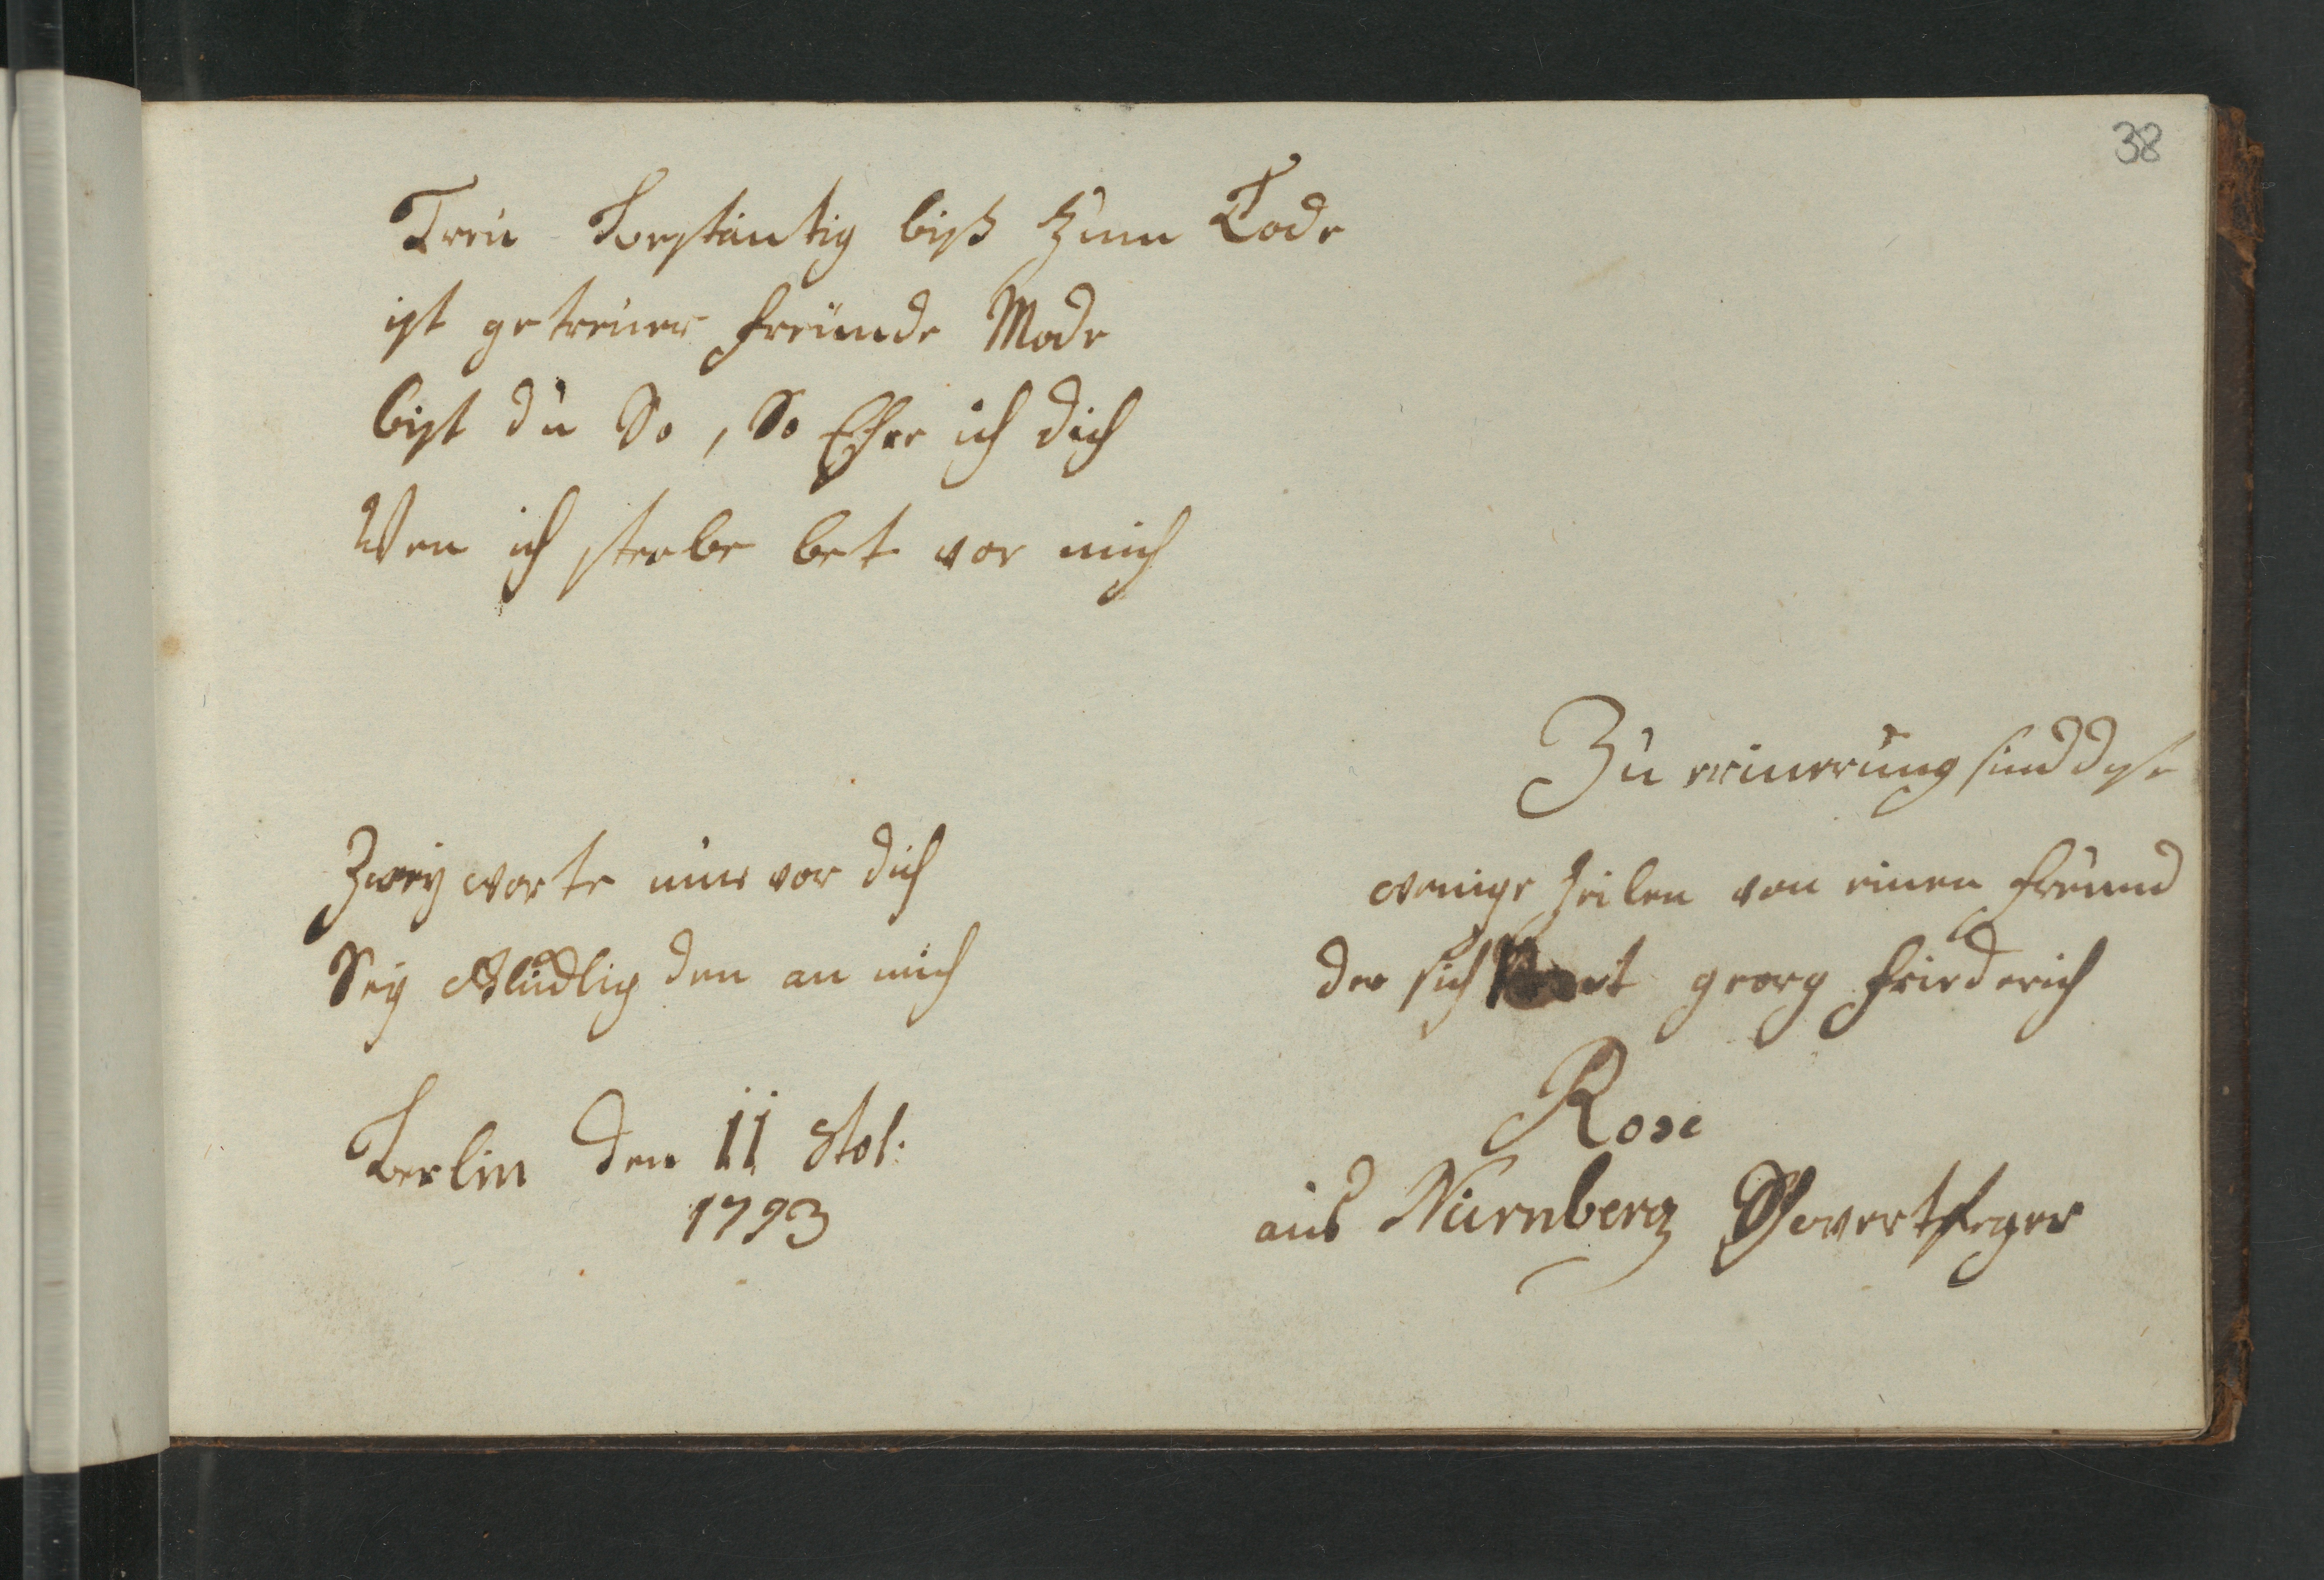 38
Treu Bestäntig biß zum Tode
ist getreuer freunde Mode
bist du So, So Ehre ich dich
Wen ich sterbe bet vor mich
Zu erinerung sind dise
wenige zeilen von einen freund
der sich georg friederich
Rose
aus Nürnberg Schwertfeger
Zwey worte nur vor dich
Sey den an mich
Berlin den 11
1793